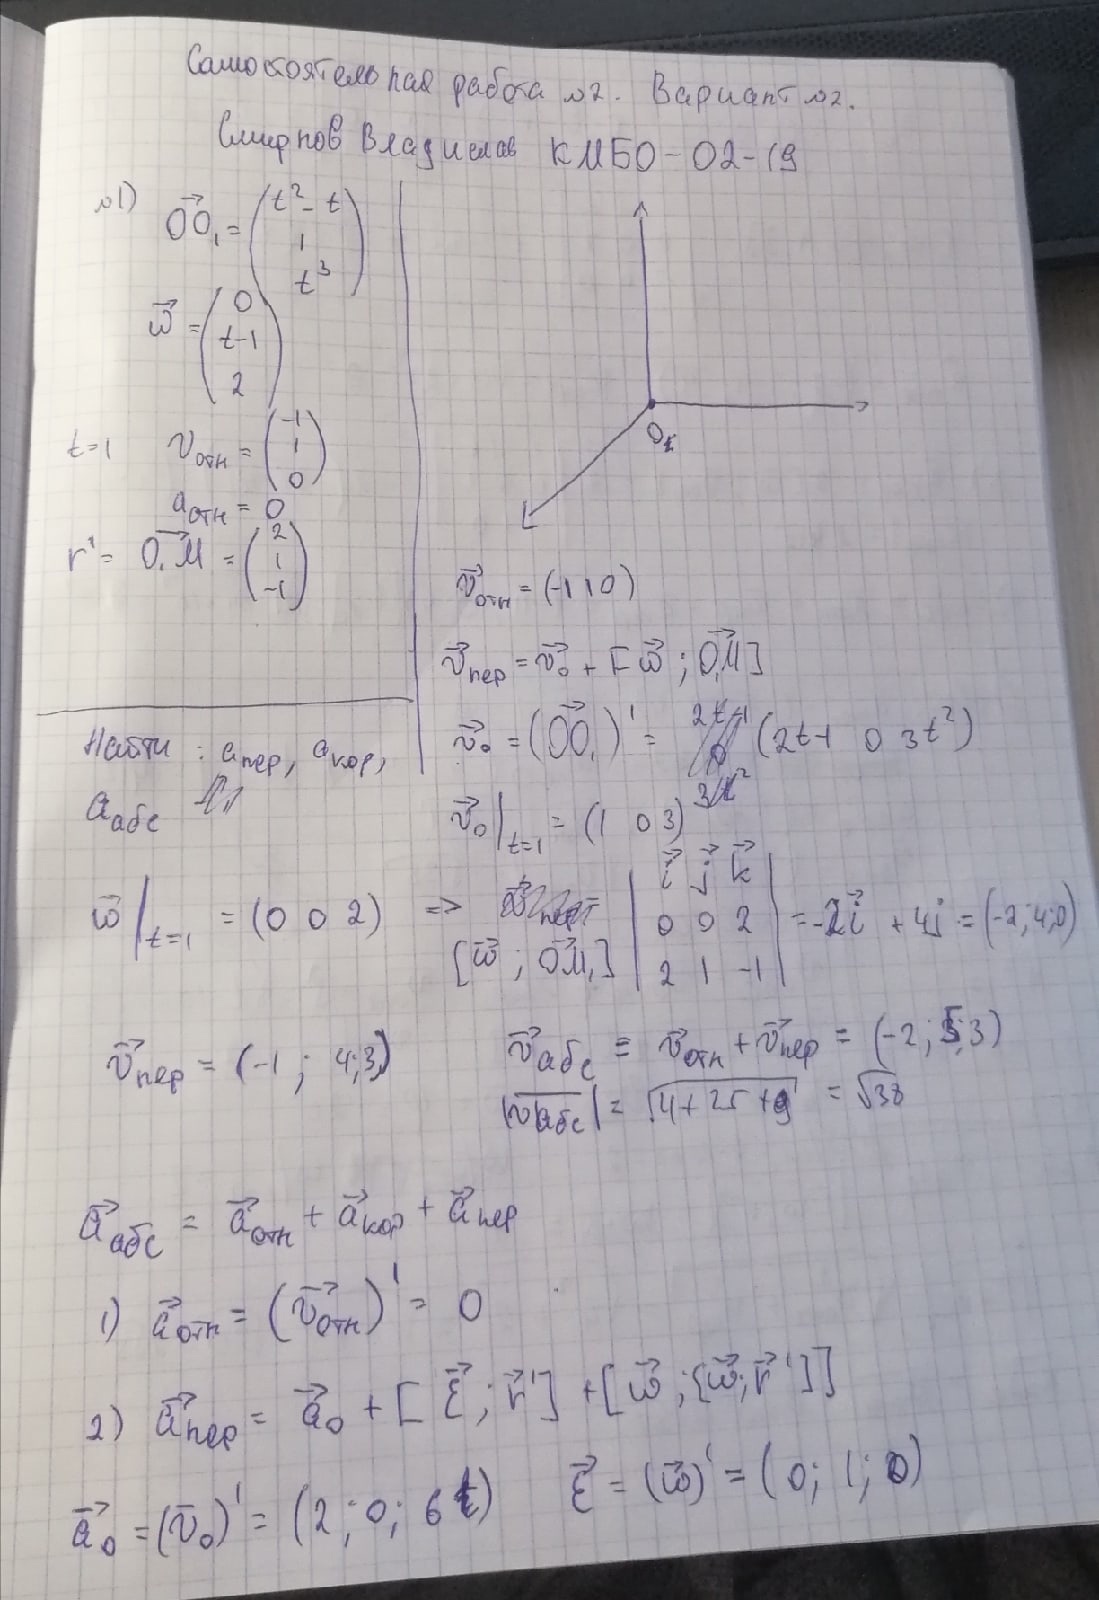 Самостоятельная работа №2. Вариант №2.
Смирнов Владислав КМБО-02-19
№1) OO₁ = (t²-t
1
t³)
ω = (0
t-1
2)
t=1 v отн = (-1
1
0)
a отн = 0
r' = O₁M = (2
1
-1)
Найти: a пер, a кор,
a абс
O₁
v отн = (-1 1 0)
v пер = v₀ + [ω; O₁M]
v₀ = (OO₁)' = (2t-1 0 3t²)
v₀|t=1 = (1 0 3)
ω|t=1 = (0 0 2) => [ω; OM₁] | i j k
0 0 2
2 1 -1 | = -2i + 4j = (-2; 4; 0)
v пер = (-1; 4; 3)
v абс = v отн + v пер = (-2; 5; 3)
|v абс| = √(4+25+9) = √38
a абс = a отн + a кор + a пер
1) a отн = (v отн)' = 0
2) a пер = a₀ + [ε; r'] + [ω; [ω; r']]
a₀ = (v₀)' = (2; 0; 6t) ε = (ω)' = (0; 1; 0)